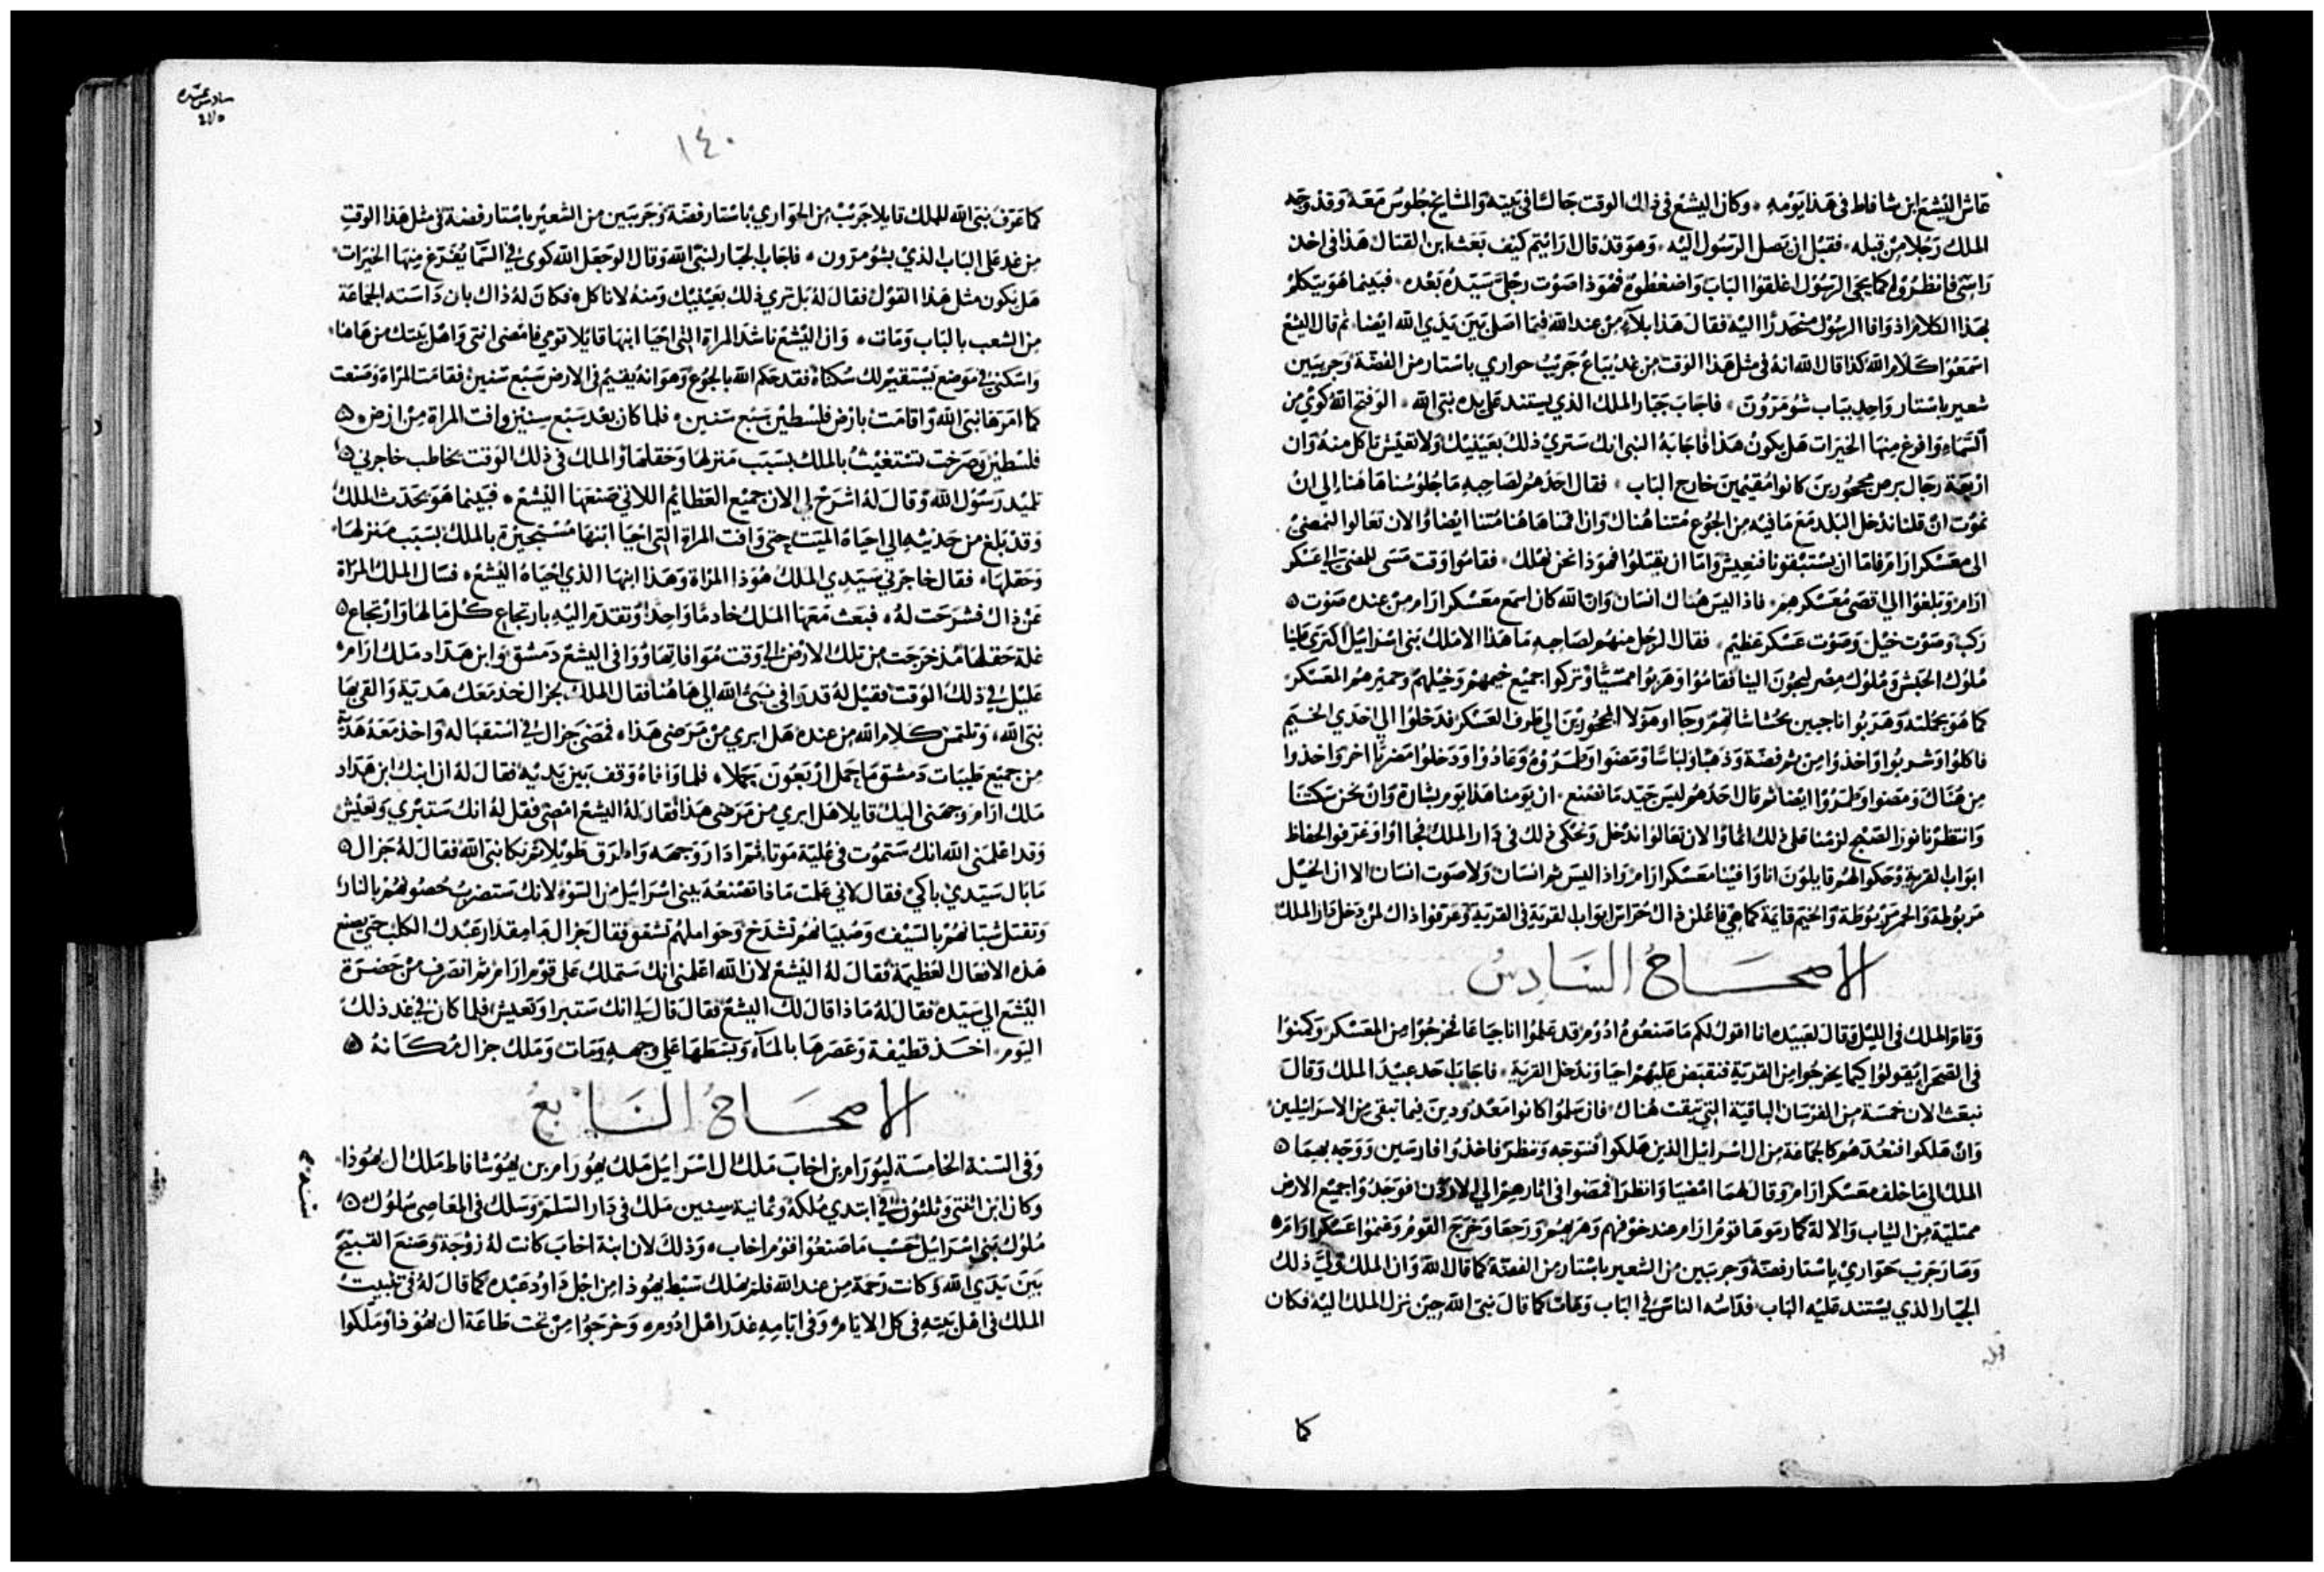 عاش اليشع ابن شافاط في هذا يومه وكان اليشع في ذلك الوقت جالسًا في بيته والمشايخ جلوس معه وقد وجه
الملك رجلا من قبله فقبل ان يصل الرسول اليه وهو قد قال ارايتم كيف بعث ابن القتال هذا في اخذ
راسي فانظروا كما يجى الرسول اغلقوا الباب واضغطوه فهوذا صوت رجلي سيده بعده فبينما هو يتكلم
بهذا الكلام اذ وافا الرسول منحدرًا اليه فقال هذا بلاء من عند الله فما اصل بين يدي الله ايضا ثم قال اليشع
اسمعوا كلام الله كذا قال الله انه في مثل هذا الوقت من غد يباع جريب حواري باستار من الفضة وجريبين
شعير باستار واحد بباب شومرون فاجاب جبار الملك الذي يستند على يده نبي الله الو فتح الله كوي من
السماء وافرغ منها الخيرات هل يكون هذا فاجابه النبي انك ستري ذلك بعينيك ولا تعيش تاكل منه وان
اربعة رجال برص مجحورين كانوا مقيمين خارج الباب فقال احدهم لصاحبه ما جلوسنا هاهنا الي ان
نموت ان قلنا ندخل البلد مع ما فيه من الجوع متنا هناك وان اقمنا هاهنا متنا ايضا والان تعالوا لنمضي
الى معسكر ارام فاما ان يستبقونا فنعيش واما ان يقتلوا فهوذا نحن نهلك فقاموا وقت مسى للمضي الي عسكر
ارام وبلغوا الي اقصى معسكرهم فاذا ليس هناك انسان وان الله كان اسمع معسكر ارام من عنده صوت
ركب وصوت خيل وصوت عسكر عظيم فقال الرجل منهم لصاحبه ما هذا الا ملك بني اسرائيل اكترى علينا
ملوك الحبش وملوك مصر ليجون الينا فقاموا وهربوا ممسيًا وتركوا جميع خيمهم وخيلهم وحميرهم المعسكر
كما هو بجملته وهربوا ناجيين بحشاشاتهم وجا اوهولا المجحورين الي طرف العسكر فدخلوا الي احدي الخيم
فاكلوا وشربوا واخذوا من ثم فضة وذهبًا ولباسًا ومضوا وطمروه وعادوا ودخلوا مضربًا اخر واخذوا
من هناك ومضوا وطمروا ايضا ثم قال احدهم ليس جيد ما نصنع ان يومنا هذا يوم بشارة وان نحن سكتنا
وانتظرنا نور الصبح لزمنا على ذلك اثما والان تعالوا ندخل ونحكي ذلك في دار الملك فجااوا وعرفوا الحفاظ
ابواب القرية وحكوا لهم قايلون انا وافينا معسكر ارام واذا ليس ثم انسان ولا صوت انسان الا ان الخيل
مربوطة والحمير مربوطة والخيم قايمة كما هي فاعلن ذاك حراس ابواب القرية في القرية وعرفوا ذاك لمن دخل دار الملك
الاصحاح السادس
وقام الملك في الليل وقال لعبيده انا اقول لكم ما صنعوا ادوم قد علموا انا جياعا فخرجوا من المعسكر وكمنوا
في الصحرا يقولوا كيما يخرجوا من القرية فنقبض عليهم احيا وندخل القرية فاجاب احد عبيد الملك وقال
نبعث الان خمسة من الفرسان الباقية التي تبقت هناك فان سلموا كانوا معدودين فيما تبقى من الاسرايلين
وان هلكوا فنعدهم كالجماعة من ال اسرايل الذين هلكوا فنوجه وننظر فاخذوا فارسين ووجه بهما
الملك الي ما خلف معسكر ارام وقال لهما امضيا وانظرا فمضوا في اثارهم الي الاردن فوجدوا جميع الارض
ممتلية من الثياب والالة كما رموها قوم ارام عند خوفهم وهربهم ورجعا وخرج القوم وغنموا عسكر ارام
وصار جريب حواري باستار فضة وجريبين من الشعير باستار من الفضة كما قال الله وان الملك ولي ذلك
الجبار الذي يستند عليه الباب فداسه الناس في الباب ومات كما قال نبي الله حين نزل الملك اليه فكان
كما
سادس عشره
١٤٠
كما عرف نبي الله للملك قايلا جريب من الحواري باستار فضة وجريبين من الشعير باستار فضة في مثل هذا الوقت
من غد على الباب الذي بشومرون فاجاب الجبار لنبي الله وقال لو جعل الله كوى في السما يفرغ منها الخيرات
هل يكون مثل هذا القول فقال له بل تري ذلك بعينيك ومنه لا تاكل فكان له ذاك بان داسته الجماعة
من الشعب بالباب ومات وان اليشع ناشد المراة التي احيا ابنها قايلا قومي فامضى انتي واهل بيتك من هاهنا
واسكني في موضع يستقيم لك سكناه فقد حكم الله بالجوع وهو انه يقيم في الارض سبع سنين فقامت المراة وصنعت
كما امرها نبي الله واقامت بارض فلسطين سبع سنين فلما كان بعد سبع سنين وافت المراة من ارض
فلسطين وصرخت تستغيث بالملك بسبب منزلها وحقلها والملك في ذلك الوقت يخاطب خاجرني
تلميد رسول الله وقال له اشرح لي الان جميع العظايم اللاتي صنعها اليشع فبينما هو يحدث الملك
وقد بلغ من حديثه الي احياه الميت حتى وافت المراة التي احيا ابنها مستجيرة بالملك بسبب منزلها
وحقلها فقال خاجرني سيدي الملك هوذا المراة وهذا ابنها الذي احياه اليشع فسال الملك المراة
عن ذاك فشرحت له فبعث معها الملك خادمًا واحدًا وتقدم اليه بارتجاع كل مالها وارتجاع
غلة حقلها مذ خرجت من تلك الارض الي وقت موافاتها ووافى اليشع دمشق وابن هداد ملك ارام
عليل في ذلك الوقت فقيل له قد وافى نبي الله الي هاهنا فقال الملك لجزال خذ معك هدية والق بها
نبي الله وتلتمس كلام الله من عنده هل ابري من مرضى هذا فمضى جزال في استقباله واخذ معه هدية
من جميع طيبات دمشق ما حمل اربعون جملا فلما وافاه وقف بين يديه فقال له ان ابنك ابن هداد
ملك ارام وجهني اليك قايلا هل ابري من مرضى هذا فقال له اليشع امضى فقل له انك ستبري وتعيش
وقد اعلمني الله انك ستموت في غلية موتا ثم ادار وجهه واطرق طويلا ثم بكا نبي الله فقال له جزال
ما بال سيدي باكي فقال لاني علمت ماذا تصنعه ببني اسرائيل من السوء لانك ستضرب حصونهم بالنار
وتقتل شبانهم بالسيف وصبيانهم تشدخ وحواملهم تشقق فقال جزال ما مقدار عبدك الكلب حتى يصنع
هذه الافعال العظيمة فقال له اليشع لان الله اعلمني انك ستملك على قوم ارام ثم انصرف من حضرة
اليشع الي سيده فقال له ماذا قال لك اليشع فقال قال لي انك ستبرا وتعيش فلما كان في غد ذلك
اليوم اخذ قطيفة وعصرها بالماء وبسطها على وجهه ومات وملك جزال مكانه
الاصحاح السابع
وفي السنة الخامسة ليورام بن اخاب ملك ال اسرايل ملك يهورام بن يهوشافاط ملك ال يهوذا
وكان ابن اثنتي وثلثون في ابتدي ملكه وثمانية سنين ملك في دار السلم وسلك في المعاصي سلوك
ملوك بني اسرايل حسب ما صنعوا قوم اخاب وذلك لان ابنة اخاب كانت له زوجة وصنع القبيح
بين يدي الله وكانت رحمة من عند الله فلم يهلك سبط يهوذا من اجل داود عبده كما قال له في تثبيت
الملك في اهل بيته في كل الايام وفي ايامه غدر اهل ادوم وخرجوا من تحت طاعة ال يهوذا وملكوا